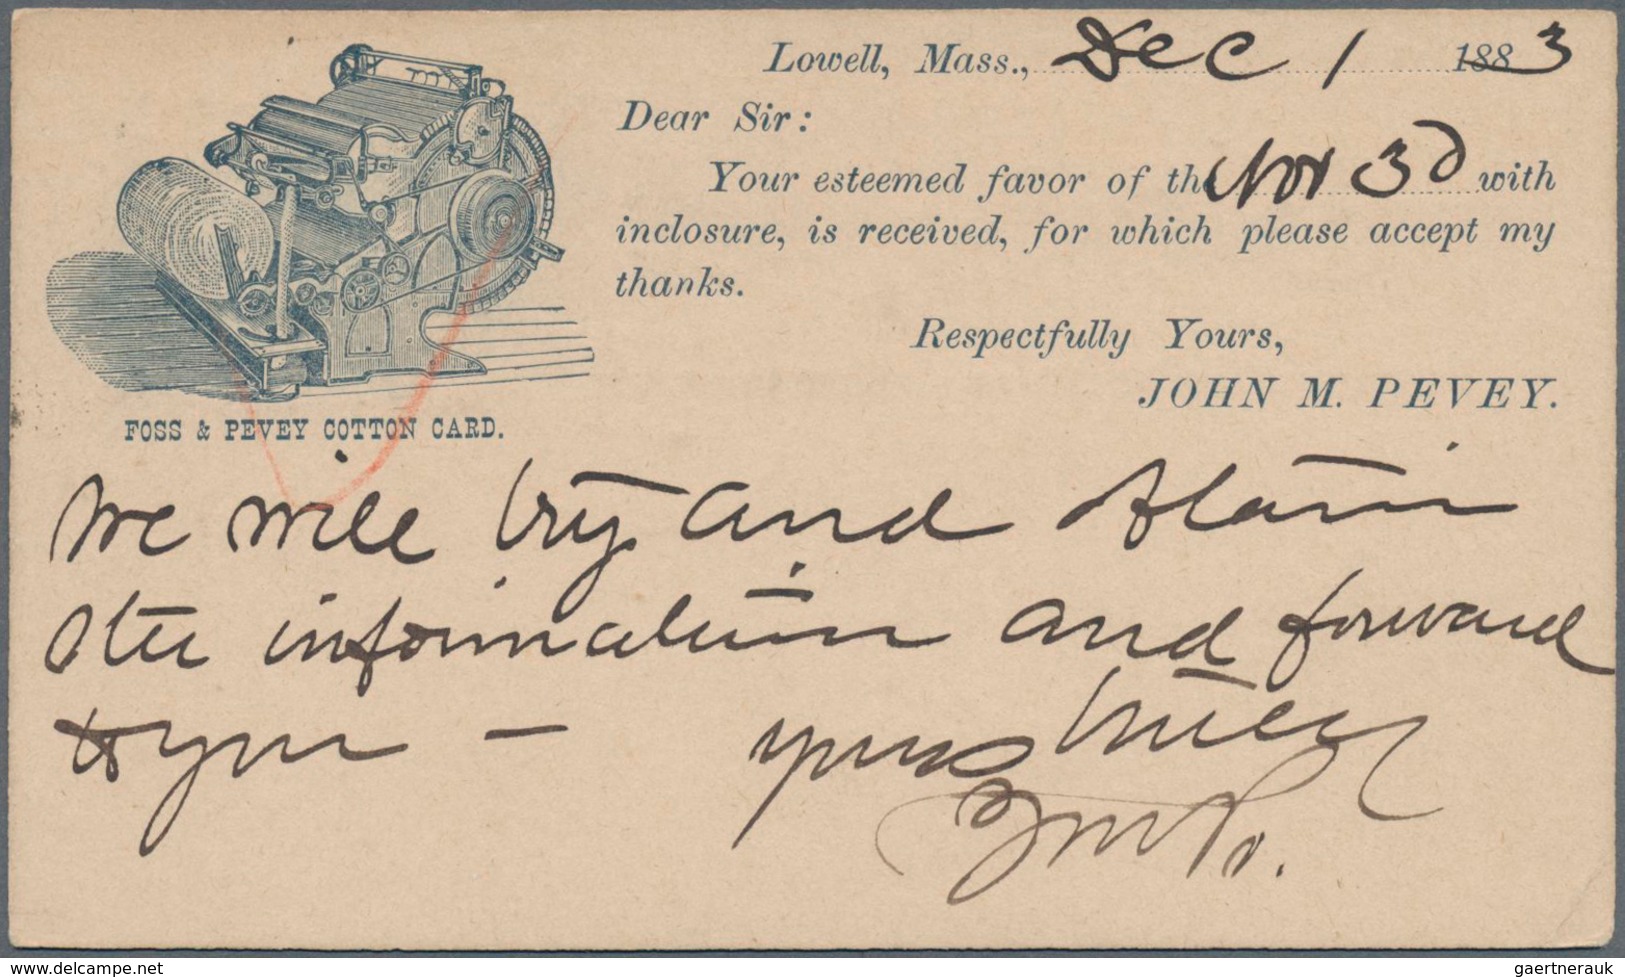 Lowell, Mass., Dec 1 1883
Dear Sir:
Your esteemed favor of the Nov 30 with
inclosure, is received, for which please accept my
thanks.
Respectfully Yours,
JOHN M. PEVEY.
FOSS & PEVEY COTTON CARD.
We will try and obtain
the information and forward
to you — yours truly
JMP.
www.delcampe.net
gaertnerauk